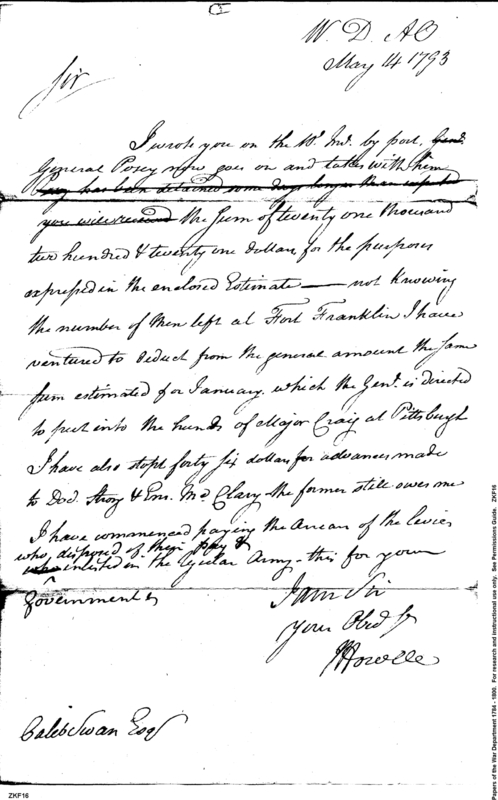 W. D. AO
May 14 1793
Sir
I wrote you on the 10th Inst. by post, Genl.
General Posey now goes on and takes with him
Posey has been detained some days longer than expected
you will receive the Sum of twenty one thousand
two hundred & twenty one dollars for the purposes
expressed in the enclosed Estimate — not knowing
the number of Men left at Fort Franklin I have
ventured to deduct from the general amount the same
sum estimated for January, which the Genl. is directed
to put into the hands of Major Craig at Pittsburgh
I have also stopt forty six dollars for advances made
to Doct. Strong & Ens. McClary the former still owes me
I have commenced paying the Arrears of the Levies
who, disposed of their pay &
who enlisted in the regular Army - this for your
Government
I am Sir
your Obed St
JHowell
Caleb Swan Esqr
ZKF16
Papers of the War Department 1784 - 1800. For research and instructional use only. See Permissions Guide. ZKF16